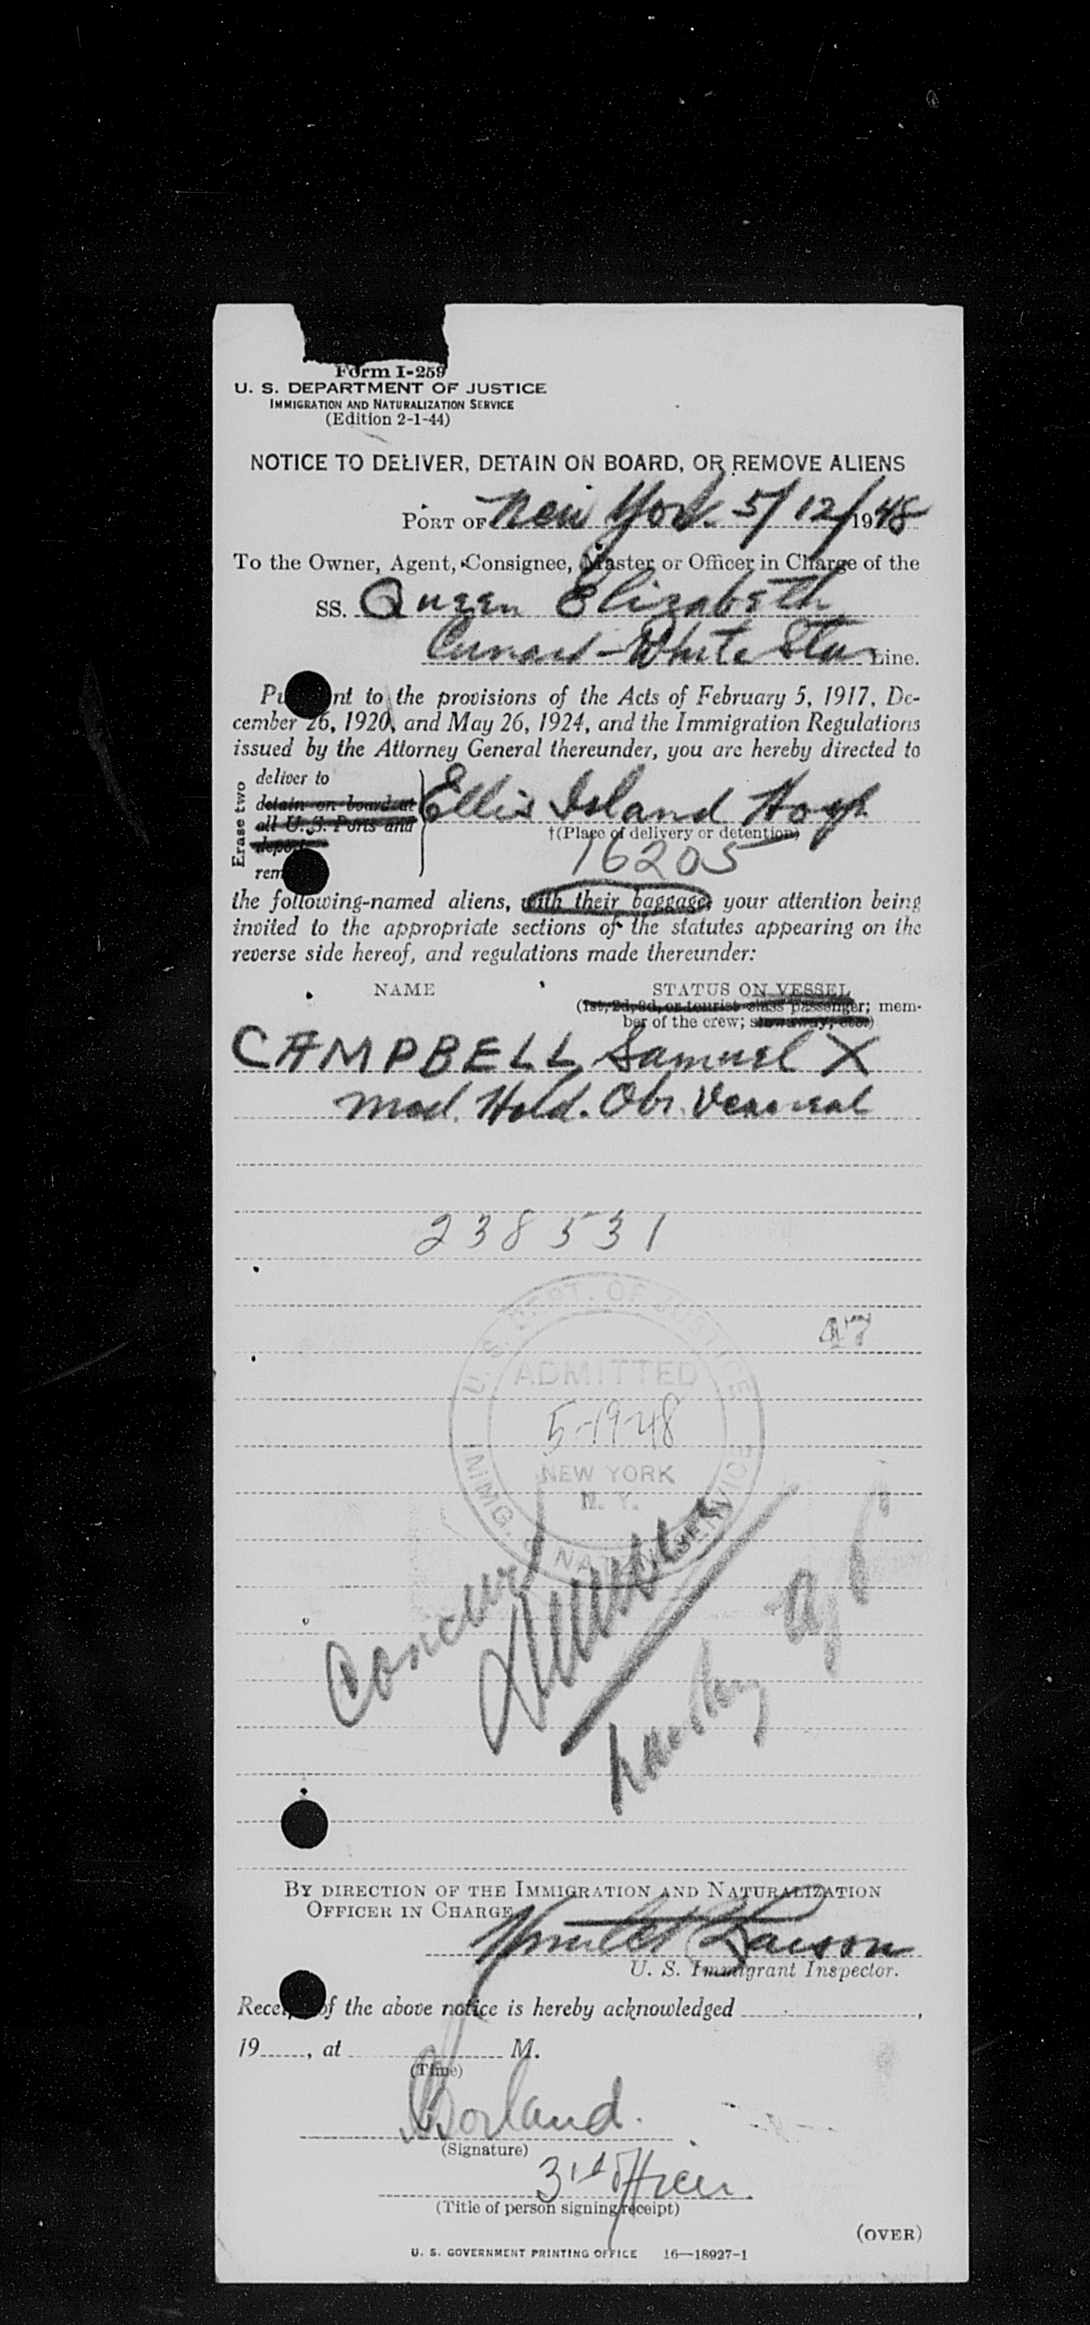 Form I-259
U. S. DEPARTMENT OF JUSTICE
IMMIGRATION AND NATURALIZATION SERVICE
(Edition 2-1-44)
NOTICE TO DELIVER, DETAIN ON BOARD, OR REMOVE ALIENS
PORT OF New York 5/12/1948
To the Owner, Agent, Consignee, Master or Officer in Charge of the
SS. Queen Elizabeth
Cunard-White Star Line.
nt to the provisions of the Acts of February 5, 1917, De-
cember 26, 1920, and May 26, 1924, and the Immigration Regulations
issued by the Attorney General thereunder, you are hereby directed to
Erase two
deliver to
detain on board at
all U. S. Ports and
deport
rem
Ellis Island Hosp
†(Place of delivery or detention)
16205
the following-named aliens, with their baggage, your attention being
invited to the appropriate sections of the statutes appearing on the
reverse side hereof, and regulations made thereunder:
NAME STATUS ON VESSEL
(1st, 2d, 3d, or tourist class passenger; mem-
ber of the crew; stowaway, etc.)
CAMPBELL, Samuel X
Med. Hold. Obs. Venereal
238531
U. S. DEPT. OF JUSTICE
ADMITTED
5-19-48
NEW YORK
N. Y.
IMMG. & NAT. SERVICE
Concur
BY DIRECTION OF THE IMMIGRATION AND NATURALIZATION
OFFICER IN CHARGE
U. S. Immigrant Inspector.
Recei of the above notice is hereby acknowledged ,
19 , at M.
(Time)
Borland.
(Signature)
3rd Officer.
(Title of person signing receipt)
(OVER)
U. S. GOVERNMENT PRINTING OFFICE 16—18927-1